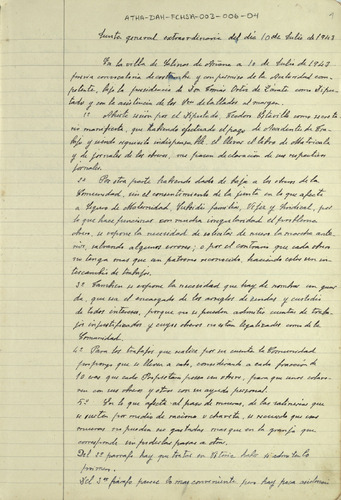 ATHA-DAH-FCHSA-003-006-04
1
Junta general extraordinaria del día 10 de Julio de 1943
En la villa de Salinas de Añana a 10 de Julio de 1943
previa convocatoria de costumbre y con permiso de la Autoridad com-
petente, bajo la presidencia de Don Tomás Ortiz de Zárate como Dipu-
tado y con la asistencia de los Sres detallados al margen.
1º Abierta sesión por el Diputado, Teodoro como secreta-
rio manifiesta, que habiendo efectuado el pago de Accidentes de Tra-
bajo y siendo requisito indispensable el llevar el libro de Matrícula
y de jornales de los obreros, me pasen declaración de sus respectivos
jornales.
2º Por otra parte habiendo dado de baja a los obreros de la
Comunidad, sin el consentimiento de la junta en lo que afecta
a Seguro de Maternidad, Subsidio familiar, Vejez y Sindical, por
lo que hace funcionar con mucha irregularidad el problema
obrero, se expone la necesidad de volverlos de nuevo la marcha ante-
rior, salvando algunos errores; o por el contrario que cada obrero
no tenga mas que un patrono reconocido, haciendo estos un in-
tercambio de trabajos.
3º Tambien se expone la necesidad que hay de nombrar un guar-
da, que sea el encargado de los arreglos de sendas y cuidados
de todos intereses, porque no se pueden admitir cuentas de traba-
jos injustificados y cuyos obreros no estan legalizados como de la
Comunidad.
4º Para los trabajos que realice por su cuenta la Comunidad
propongo que se lleven a cabo, considerando a cada fracción de
10 eras que cada Propietario posea un obrero, para que unos colabo-
ren con sus obreros y otros con su ayuda personal.
5º En lo que afecta al paso de mueras, de las salinerías que
se surten por medio de raciona o charta, se recuerda que esas
mueras no pueden ser gastadas mas que en la granja que
corresponde sin poderlas pasar a otra.
Del 1er párrafo hay que tratar en Vitoria
Del 3er párrafo parece lo mas conveniente pero hay poca